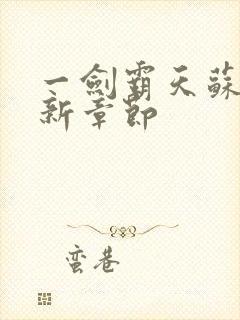 一劍霸天蘇
新章節
蛮巷